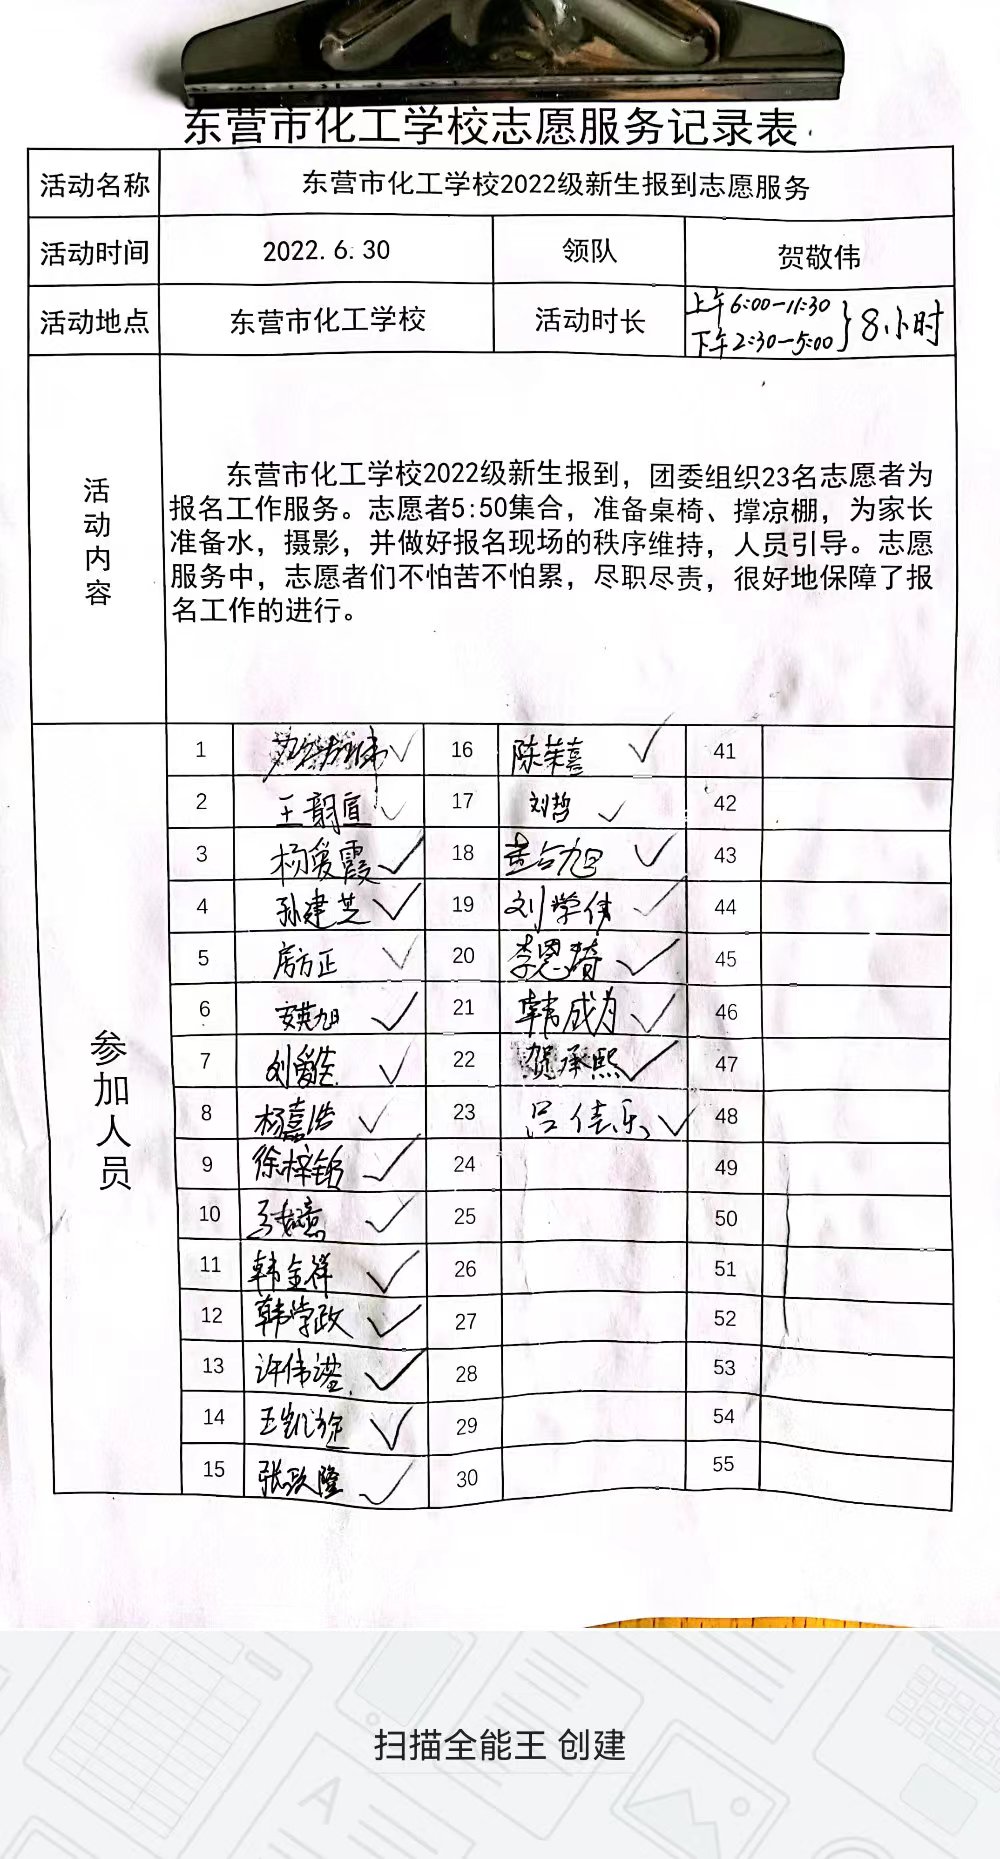 东营市化工学校志愿服务记录表
活动名称 东营市化工学校2022级新生报到志愿服务
活动时间 2022.6.30 领队 贺敬伟
活动地点 东营市化工学校 活动时长 上午6:00-11:30 下午2:30-5:00 }8小时
活动内容
东营市化工学校2022级新生报到，团委组织23名志愿者为
报名工作服务。志愿者5:50集合，准备桌椅、撑凉棚，为家长
准备水，摄影，并做好报名现场的秩序维持，人员引导。志愿
服务中，志愿者们不怕苦不怕累，尽职尽责，很好地保障了报
名工作的进行。
参加人员
1 ✓ 16 陈荣喜 ✓ 41
2 王韵宣 ✓ 17 刘哲 ✓ 42
3 杨爱霞 ✓ 18 旭 ✓ 43
4 孙建芝 ✓ 19 刘学伟 ✓ 44
5 房方正 ✓ 20 李恩琦 ✓ 45
6 安英旭 ✓ 21 韩成为 ✓ 46
7 刘爱 ✓ 22 贺承熙 ✓ 47
8 杨嘉浩 ✓ 23 吕佳乐 ✓ 48
9 徐梓铭 ✓ 24 49
10 ✓ 25 50
11 韩金祥 ✓ 26 51
12 韩学政 ✓ 27 52
13 许伟滢 ✓ 28 53
14 王凯 ✓ 29 54
15 张玖隆 ✓ 30 55
扫描全能王 创建